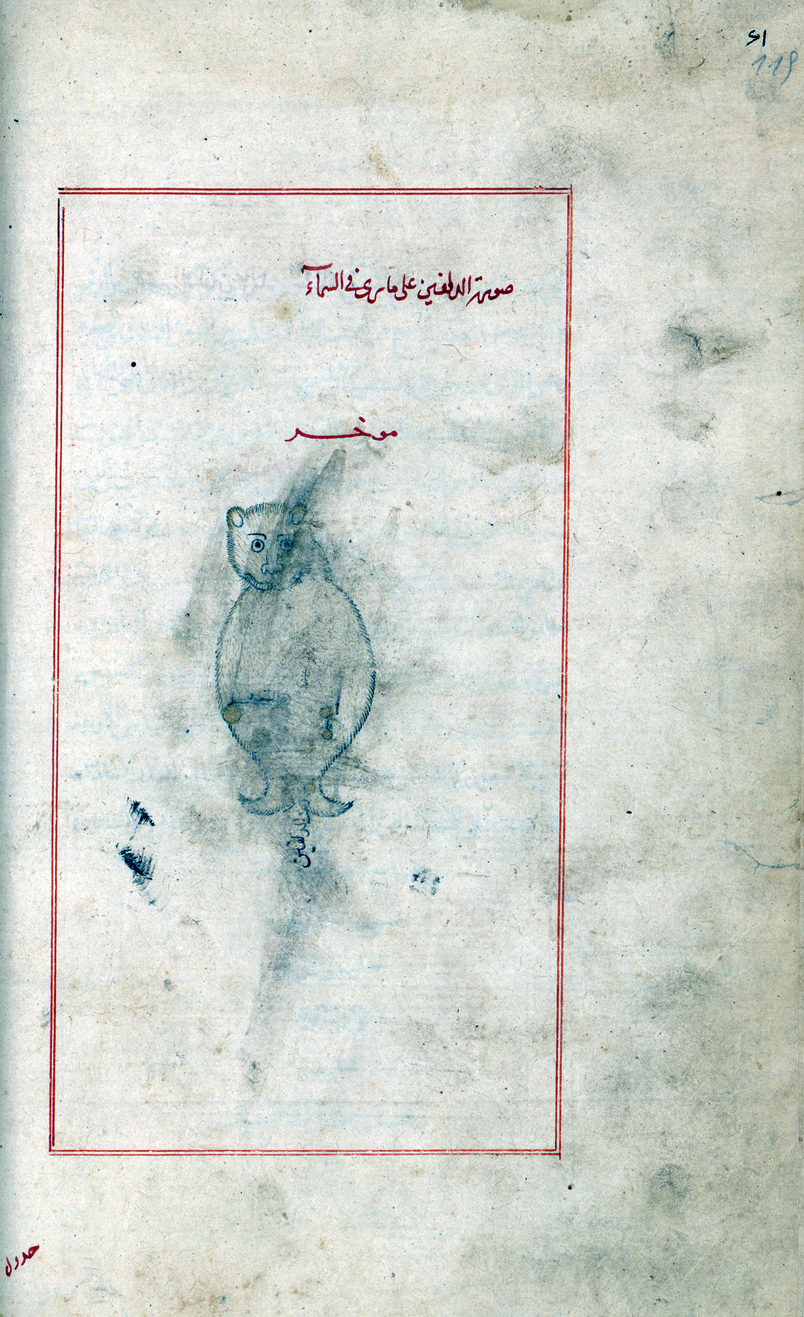 119
صورة الدلفين على ما يرى في السماء
موخر
الدلفين
جدول